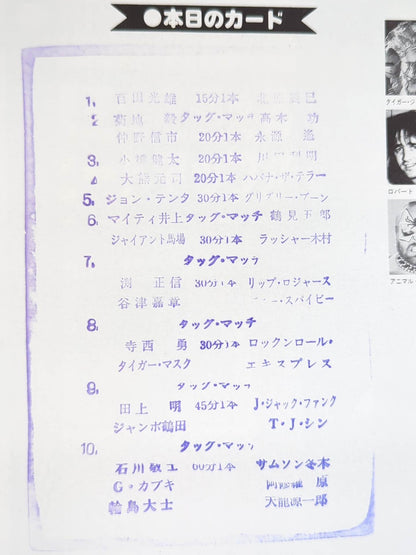 ●本日のカード
1, 百田光雄 15分1本 北原辰巳
2 菊地 毅 タッグ・マッチ 高木 功
仲野信市 20分1本 永源 遙
3, 小橋健太 20分1本 川田利明
4 大熊元司 20分1本 ハバナ・ザ・テラー
5, ジョン・テンタ 30分1本 グリズリー・ブーン
6, マイティ井上 タッグ・マッチ 鶴見五郎
ジャイアント馬場 30分1本 ラッシャー木村
7, タッグ・マッチ
渕 正信 30分1本 リップ・ロジャース
谷津嘉章 スパイビー
8, タッグ・マッチ
寺西 勇 30分1本 ロックンロール・
タイガー・マスク エキスプレス
9, タッグ・マッチ
田上 明 45分1本 J・ジャック・ファンク
ジャンボ鶴田 T・J・シン
10, タッグ・マッチ
石川敬士 60分1本 サムソン冬木
G・カブキ 阿修羅 原
輪島大士 天龍源一郎
タイガー・ジ
ロバート
アニマル